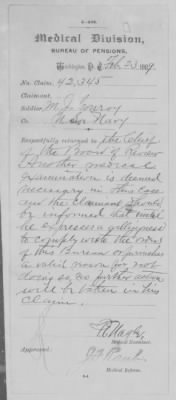 Medical Division,
BUREAU OF PENSIONS,
Washington, D. C. Feb. 23, 1889.
No. Claim, 42,345
Claimant,
Soldier, M. J. Conroy
Co. Navy
Respectfully returned to the Chief
of the Board of Review
Another medical
examination is deemed
necessary in this case
and the claimant should
be informed that unless
he expresses a willingness
to comply with the orders
of this Bureau or furnishes
a valid reason for not
doing so, no further action
will be taken in his
claim.
Medical Examiner.
Approved:
Medical Referee.